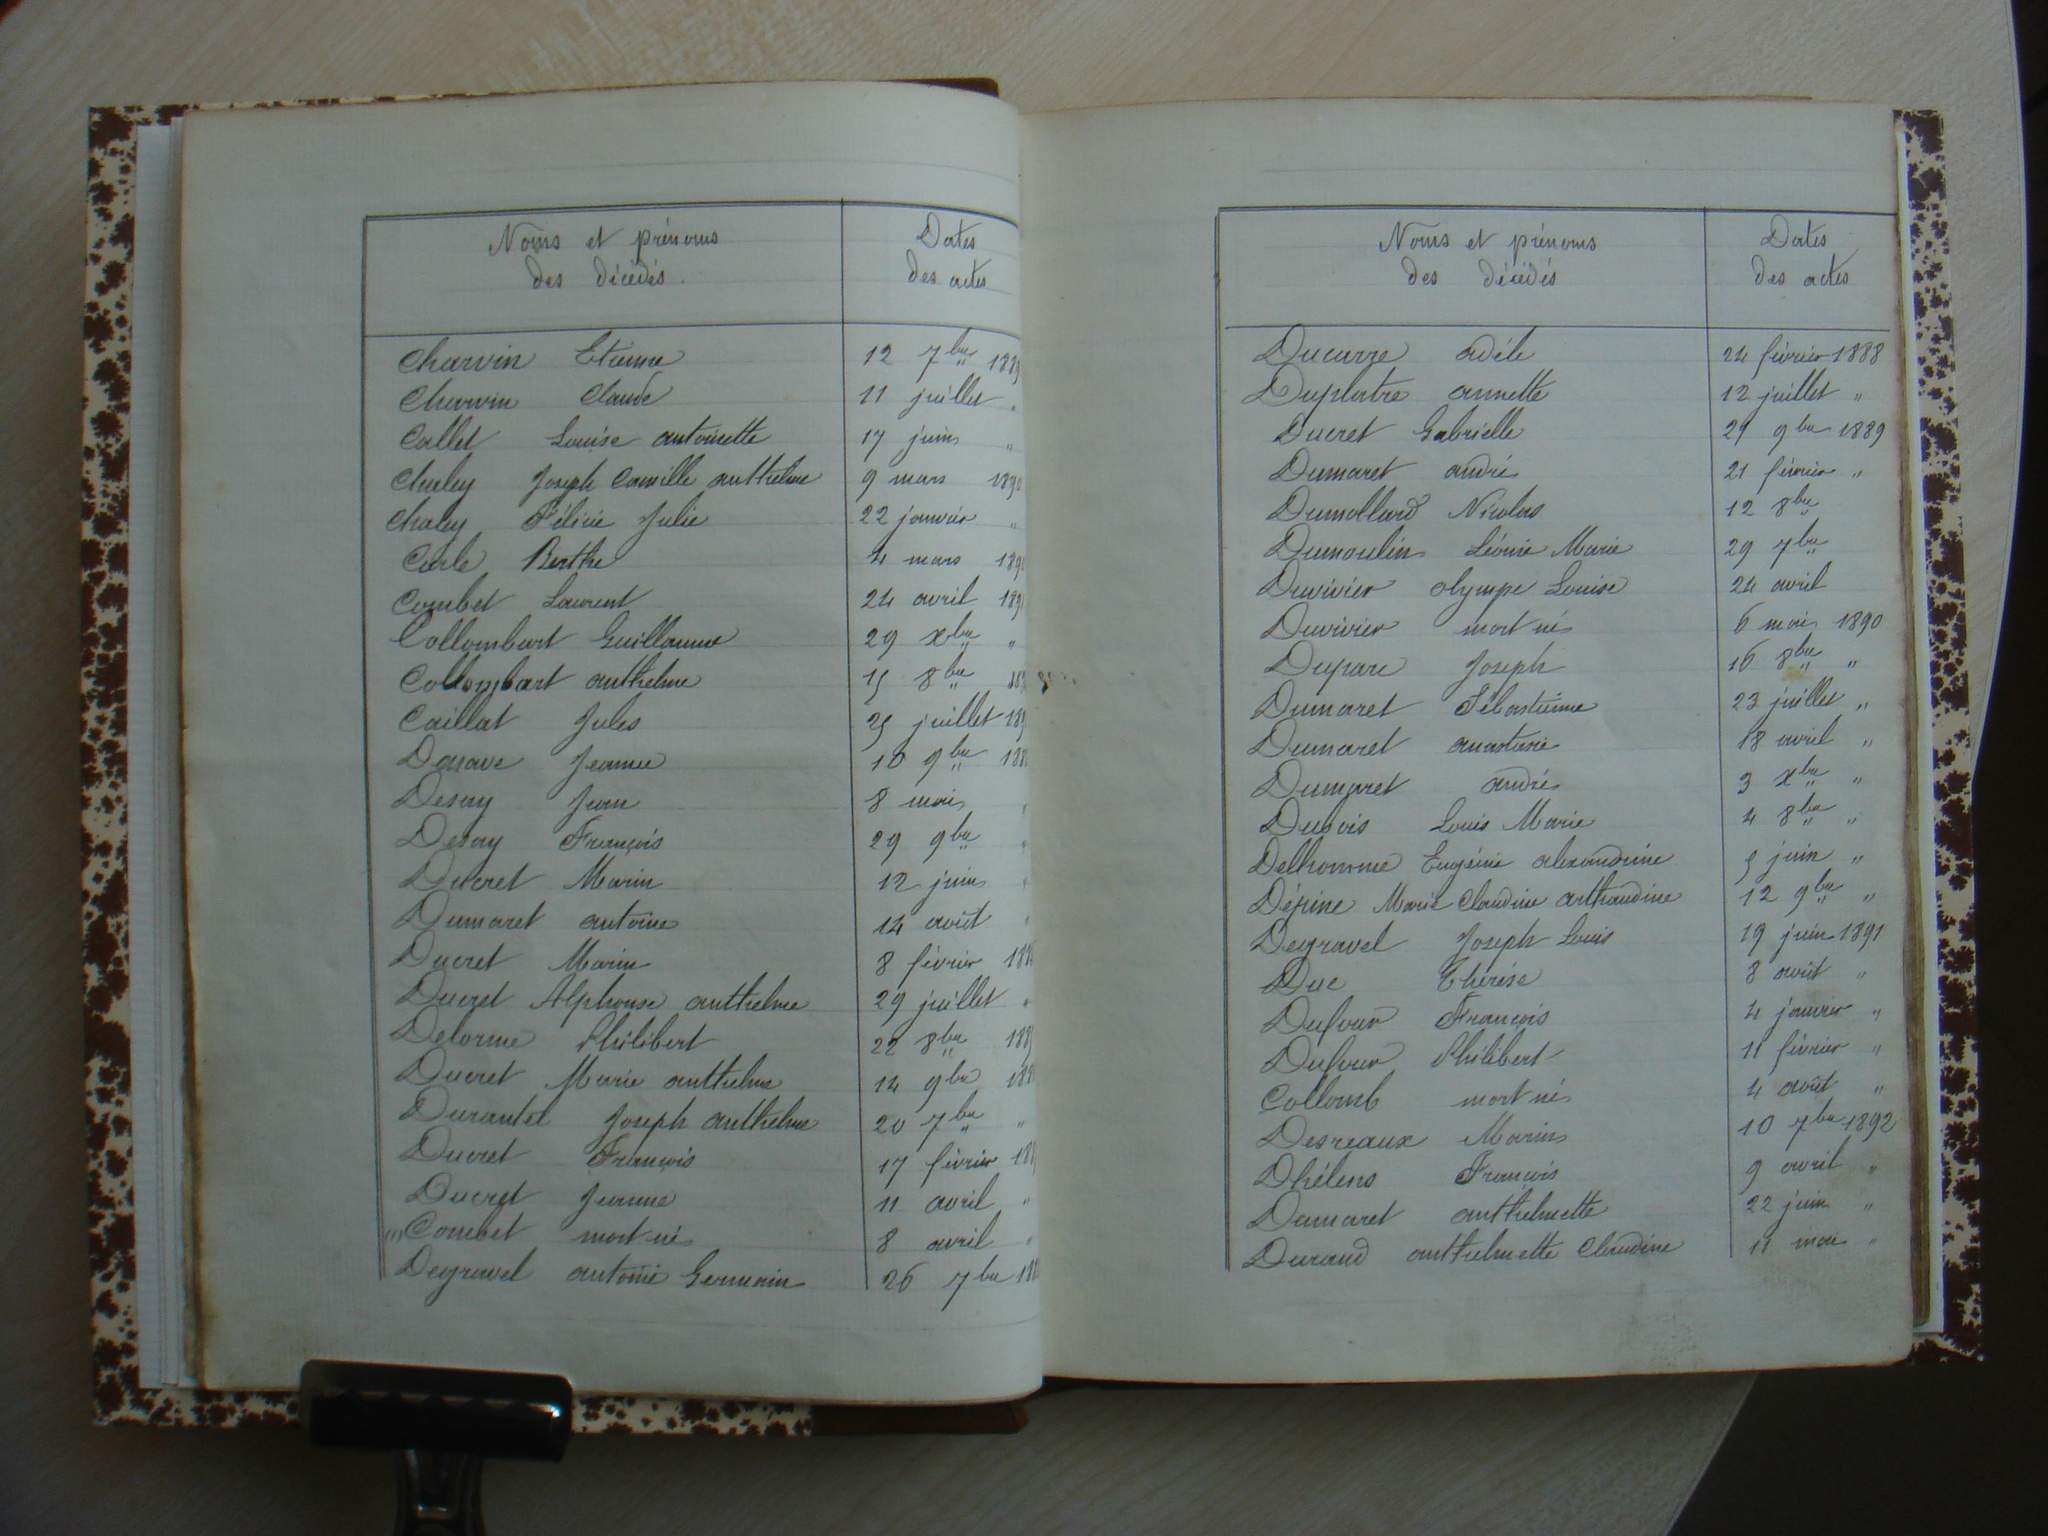 Noms et prénoms Dates
des décédés. des actes
Charvin Etienne 12 7bre 1889
Charvin Claude 11 juillet "
Collet Louise antoinette 17 juin "
Charley Joseph Camille anthelme 9 mars 1890
Chaley Félicie Julie 22 janvier "
Carle Berthe 4 mars
Combet Laurent 24 avril
Collombart Guillaume 29 xbre "
Collombart anthelme 15 8bre
Caillat Jules 25 juillet
Jeanne 10 9bre
Desay Jean 8 mai
Desay François 29 9bre
Ducret Marin 12 juin
Dumaret antoine 14 août
Ducret Marin 8 février
Ducret Alphonse anthelme 29 juillet "
Delorme Philibert 22 8bre
Ducret Marie anthelme 14 9bre
Durantel Joseph anthelme 20 7bre "
Ducret François 17 février
Ducret Jeanne 11 avril "
Combet mort-né 8 avril
Degravel antoine Germain 26 7bre
Noms et prénoms Dates
des décédés des actes
Ducarre adèle 24 février 1888
Duplatre annette 12 juillet "
Ducret Gabrielle 9bre 1889
Dumaret andré 21 février "
Dumollard Nicolas 12 8bre
Dumoulin Léonie Marie 29 7bre
Duvivier olympe Louise 24 avril
Duvivier mort né 6 mai 1890
Duparc Joseph 16 8bre "
Dumaret Sébastienne 23 juillet "
Dumaret anastasie 18 avril "
Dumaret andré 3 xbre "
Dubois Louis Marie 4 8bre "
Delhomme Eugénie alexandrine 5 juin "
Dépine Marie Claudine arthaudine 12 9bre "
Degravel Joseph Louis 19 juin 1891
Duc Thérèse 8 août "
Dufour François 4 janvier "
Dufour Philibert 11 février "
Collomb mort né 4 août "
Desreaux Marin 10 7bre 1892
Dhélens François 9 avril "
Damaret anthelmette 22 juin "
Durand anthelmette Claudine 11 mai "